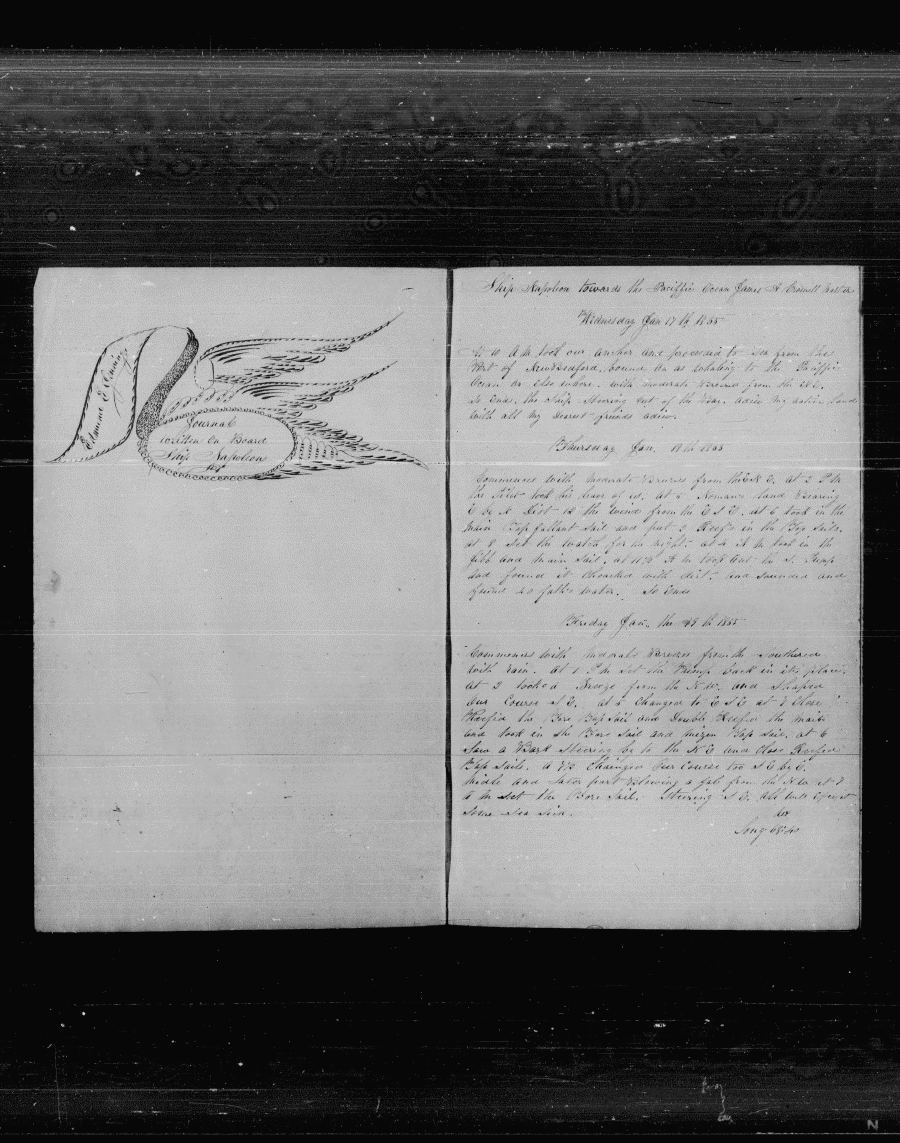 Edmund E Jennings
Journal
written On Board
Ship Napoleon
Ship Napoleon towards the Paciffic Ocean James H Crowell Master
Wednesday Jan 17th 1855
At 10 A M took our anchor and proceeded to Sea from the
Port of New Bedford, bound on a whaleing to the Paciffic
Ocean or elsewhere. with moderate Breezes from the
So Ends, the Ship Steering out of the Bay. adieu my native land
with all my dearest friends adieu.
Thursday Jan. 18th 1855
Commences with moderate Breezes from the N E. at 2 P M
the Pilot took his leave of us, at 5 Nomans Land Bearing
Dist 12 the wind from the E S E. at 6 took in the
main Top gallant Sail and put 2 Reefs in the Top Sails.
at 8 Set the watch for the night at 2 A M took in the
Jibb and main Sail. at A M took out the Pump
and found it Choacked with dirt, and Sounded and
found water. So Ends
Friday Jan. the 19th 1855
Commences with moderate Breezes from the Southered
with rain. at 1 P M Set the Pump back in its place.
at 2 took a Breeze from the N.W. and Shaped
our Course S E. at 5 Changed to E S E at 8 Close
Reefed the Fore Top Sail and Double Reefed the main
and took in the Fore Sail and mizen Top Sail. at 6
Saw a Bark Steering by to the N E and Close Reefed
Top Sails. a 7½ Changed our Course to S E by E.
middle and later part Blowing a gale from the N W at 8
A M Set the Fore Sail. Steering S E. All well Except
Some Sea Sick.
Long